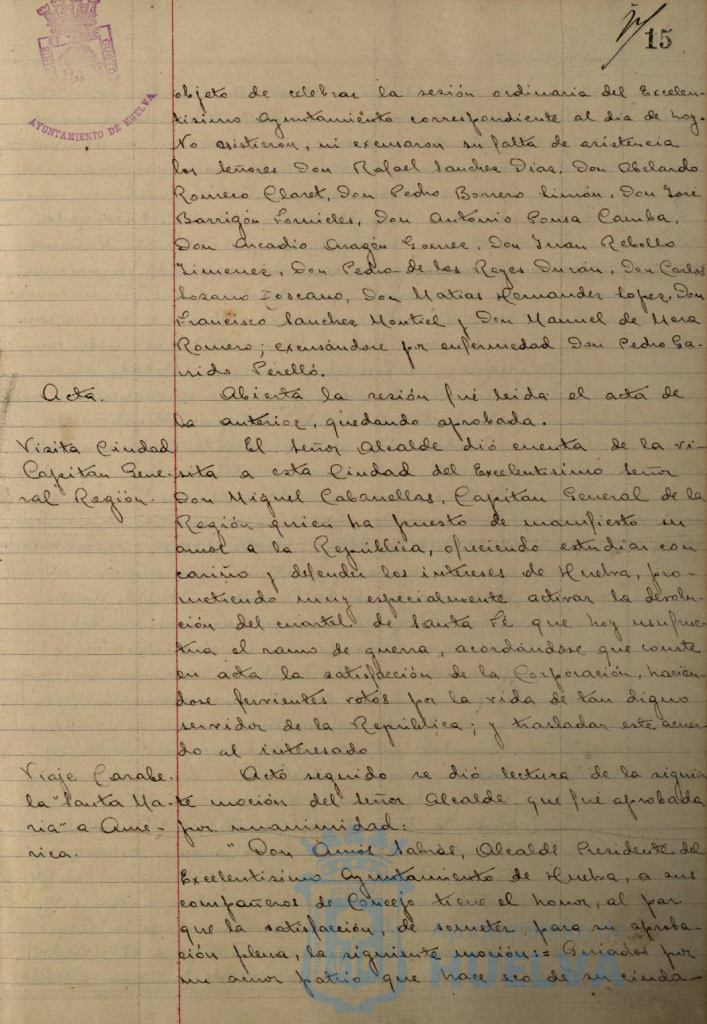 15
AYUNTAMIENTO DE HUELVA
objeto de celebrar la sesión ordinaria del Excelen-
tisimo Ayuntamiento correspondiente al dia de hoy.
No asistieron, ni excusaron su falta de asistencia
los Señores Don Rafael Sanchez Diaz, Don Abelardo
Romero Claret, Don Pedro Borrero Limón, Don José
Barrigón Fornieles, Don António Ponsa Camba,
Don Arcadio Aragón Gomez, Don Juan Rebollo
Jimenez, Don Pedro de los Reyes Durán, Don Carlos
Lozano Toscano, Don Matias Hernandez Lopez, Don
Francisco Sanchez Montiel y Don Manuel de Mora
Romero; excusándose por enfermedad Don Pedro Ga-
rrido Perelló.
Acta.
Abierta la sesión fué leida el acta de
la anterior, quedando aprobada.
Visita Ciudad
Capitán Gene-
ral Región.
El Señor Alcalde dió cuenta de la vi-
sita a esta Ciudad del Excelentisimo Señor
Don Miguel Cabanellas, Capitán General de la
Región quien ha puesto de manifiesto su
amor a la República, ofreciendo estudiar con
cariño y defender los intereses de Huelva, pro-
metiendo muy especialmente activar la devolu-
ción del cuartel de Santa Fé que hoy usufruc-
túa el ramo de guerra, acordándose que conste
en acta la satisfacción de la Corporación, hacién-
dose fervientes votos por la vida de tan digno
servidor de la República; y trasladar este acuer-
do al interesado
Viaje Carabe-
la "Santa Ma-
ria" a Ame-
rica.
Acto seguido se dió lectura de la siguien-
te moción del Señor Alcalde que fué aprobada
por unanimidad:
"Don Amós Sabrás, Alcalde Presidente del
Excelentisimo Ayuntamiento de Huelva, a sus
compañeros de Concejo tiene el honor, al par
que la satisfacción, de someter, para su aproba-
ción plena, la siguiente moción:= Guiados por
un amor patrio que hace eco de su ciuda-
HUELVA